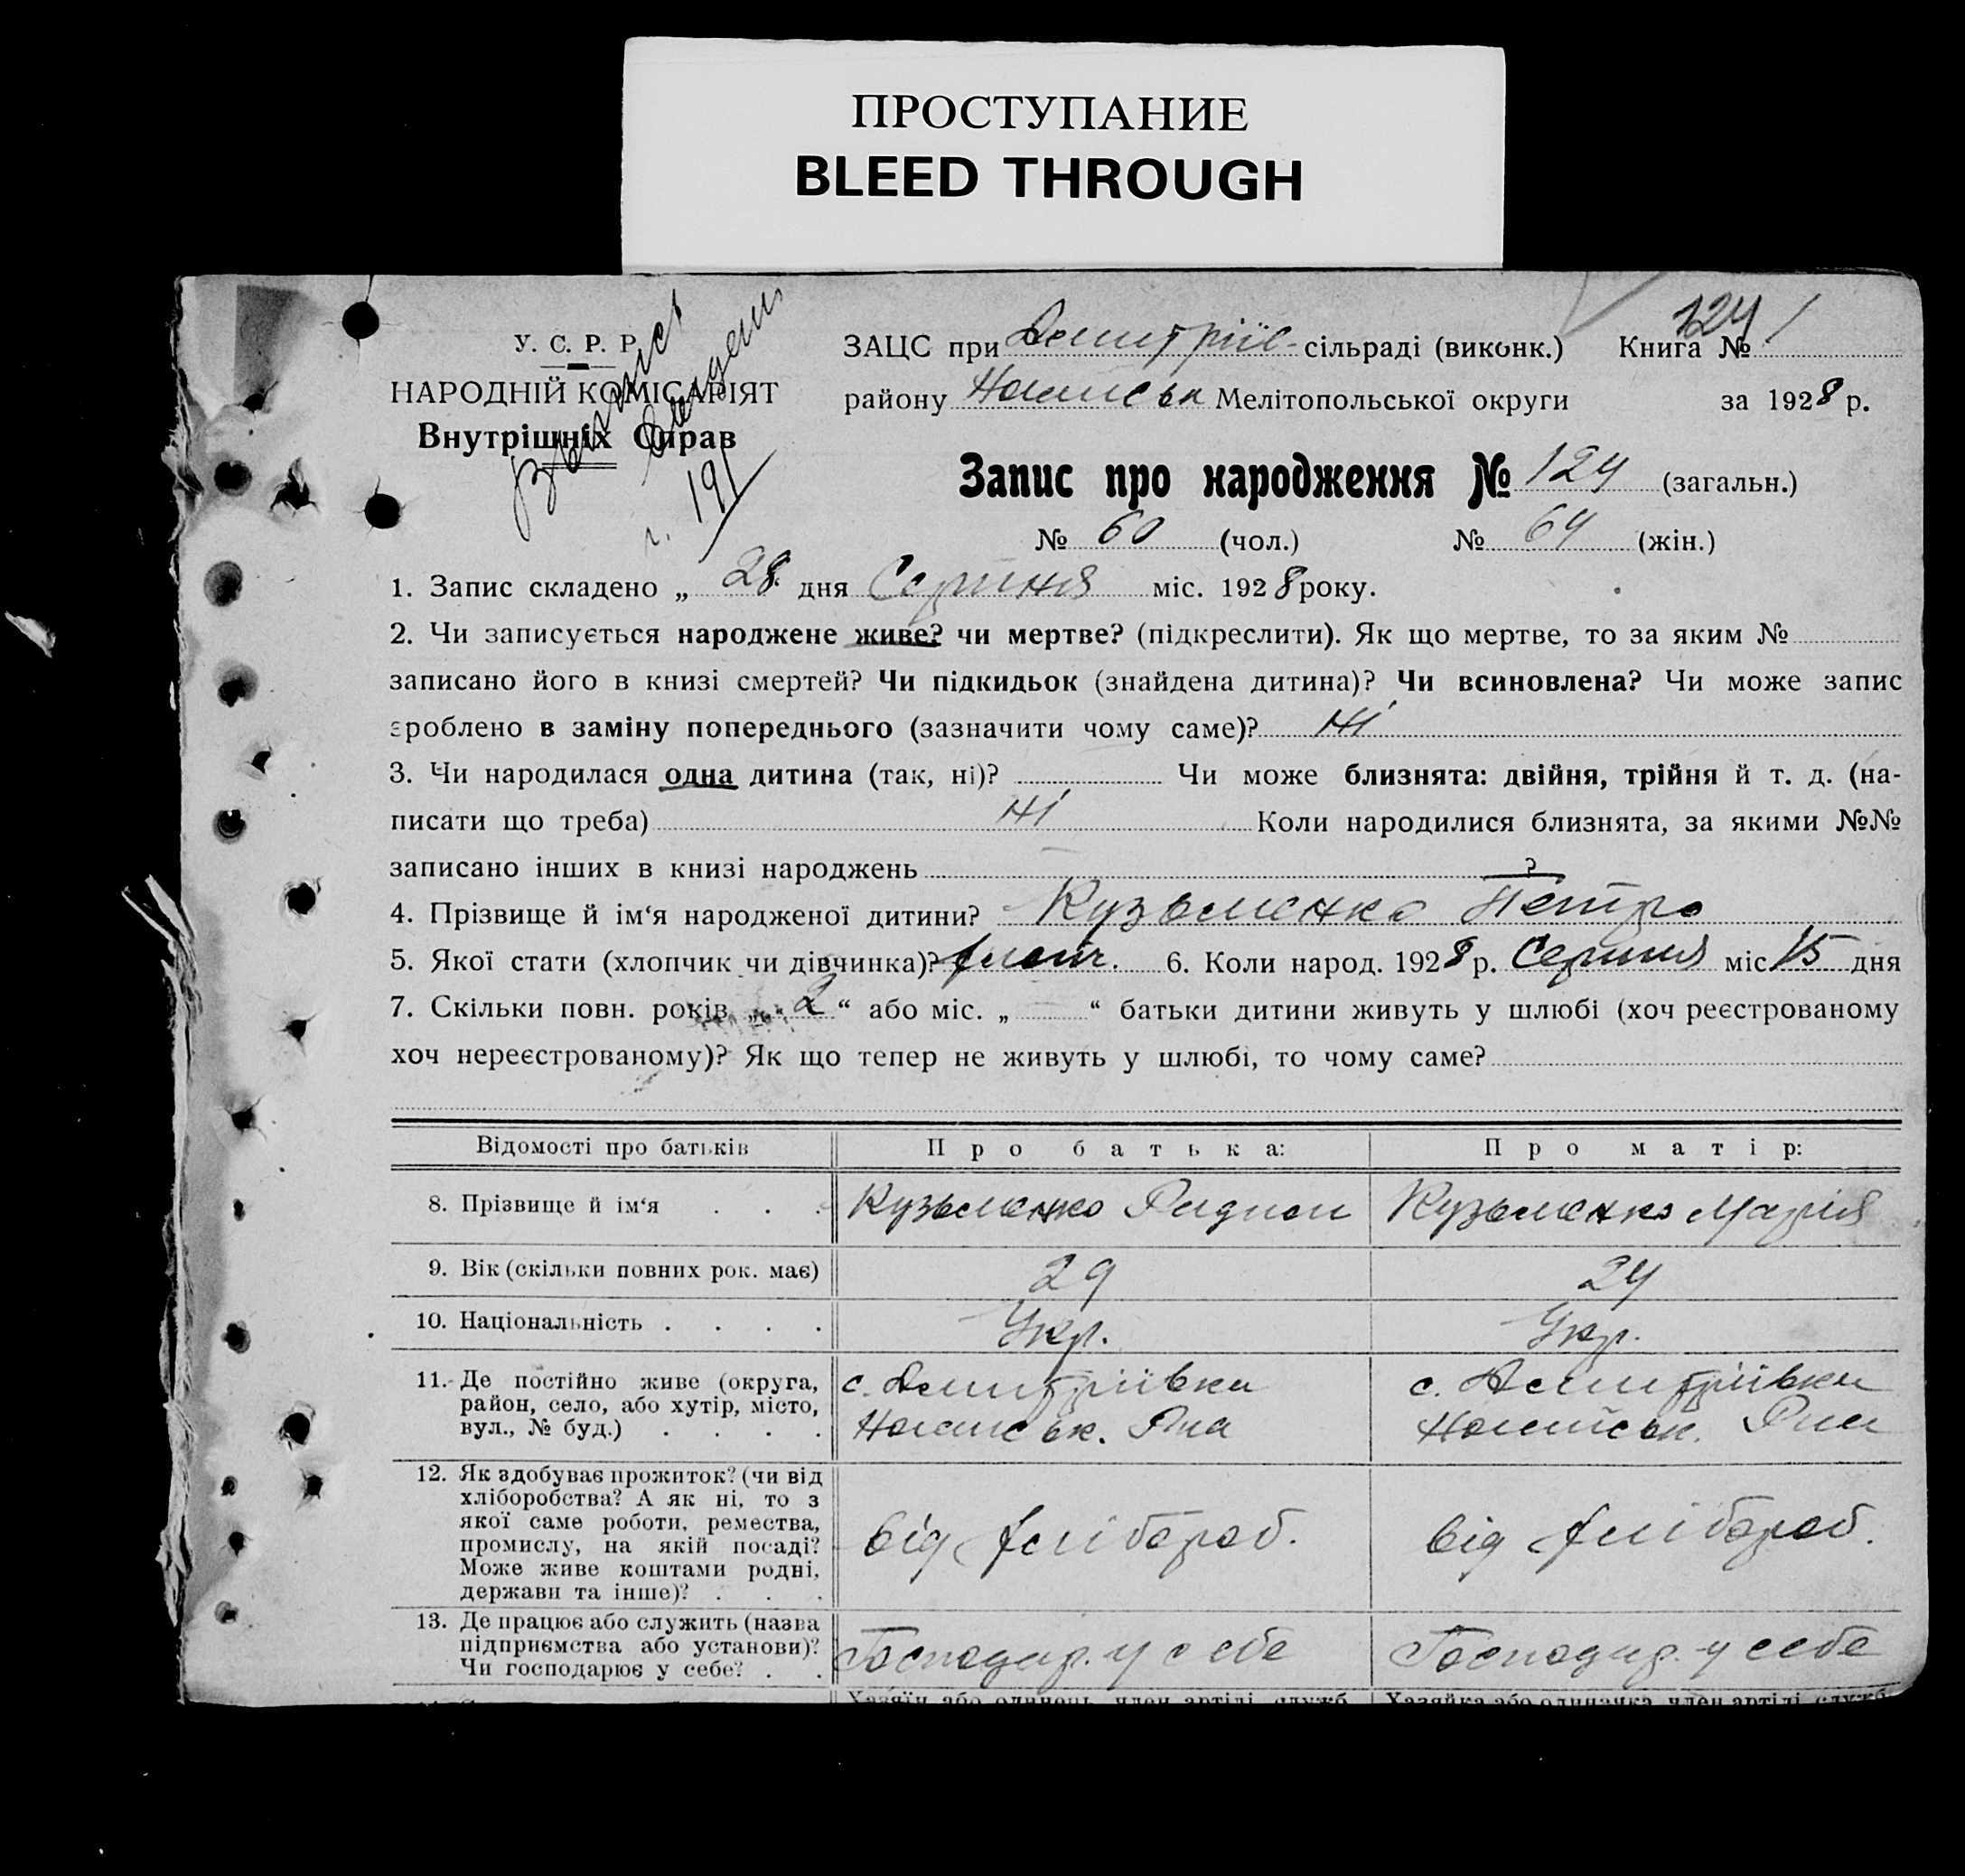 ПРОСТУПАНИЕ
BLEED THROUGH
124
У. С. Р. Р. ЗАЦС при Дмитріїв- сільраді (виконк.) Книга № 1
НАРОДНІЙ КОМІСАРІЯТ району Мелітопольської округи за 1928 р.
Внутрішніх Справ
г. 191
Запис про народження № 124 (загальн.)
№ 60 (чол.) № 64 (жін.)
1. Запис складено „ 28 дня Серпня міс. 1928 року.
2. Чи записується народжене живе? чи мертве? (підкреслити). Як що мертве, то за яким №
записано його в книзі смертей? Чи підкидьок (знайдена дитина)? Чи всиновлена? Чи може запис
зроблено в заміну попереднього (зазначити чому саме)? Ні
3. Чи народилася одна дитина (так, ні)? Чи може близнята: двійня, трійня й т. д. (на-
писати що треба) Ні Коли народилися близнята, за якими №№
записано інших в книзі народжень
?
4. Прізвище й ім‘я народженої дитини? Кузьменко Петро
5. Якої стати (хлопчик чи дівчинка)? хлопч. 6. Коли народ. 1928 р. Серпня міс 15 дня
7. Скільки повн. років „ 2 “ або міс. „ “ батьки дитини живуть у шлюбі (хоч реєстрованому
хоч нереєстрованому)? Як що тепер не живуть у шлюбі, то чому саме?
Відомості про батьків Про батька: Про матір:
8. Прізвище й ім‘я . . . Кузьменко Кузьменко Марія
9. Вік (скільки повних рок. має) 29 24
10. Національність . . . . Укр. Укр.
11. Де постійно живе (округа, с. Дмитріївка с. Дмитріївка
район, село, або хутір, місто, Р-на Р-на
вул., № буд.) . . . .
12. Як здобуває прожиток? (чи від
хліборобства? А як ні, то з
якої саме роботи, ремества, від хлібороб. від хлібороб.
промислу, на якій посаді?
Може живе коштами родні,
держави та інше)? . . .
13. Де працює або служить (назва
підприємства або установи)? Господар. у себе Господар. у себе
Чи господарює у себе? . .
Хазяїн або одинець, член артілі, служб. Хазяйка або одиначка, член артілі, служб